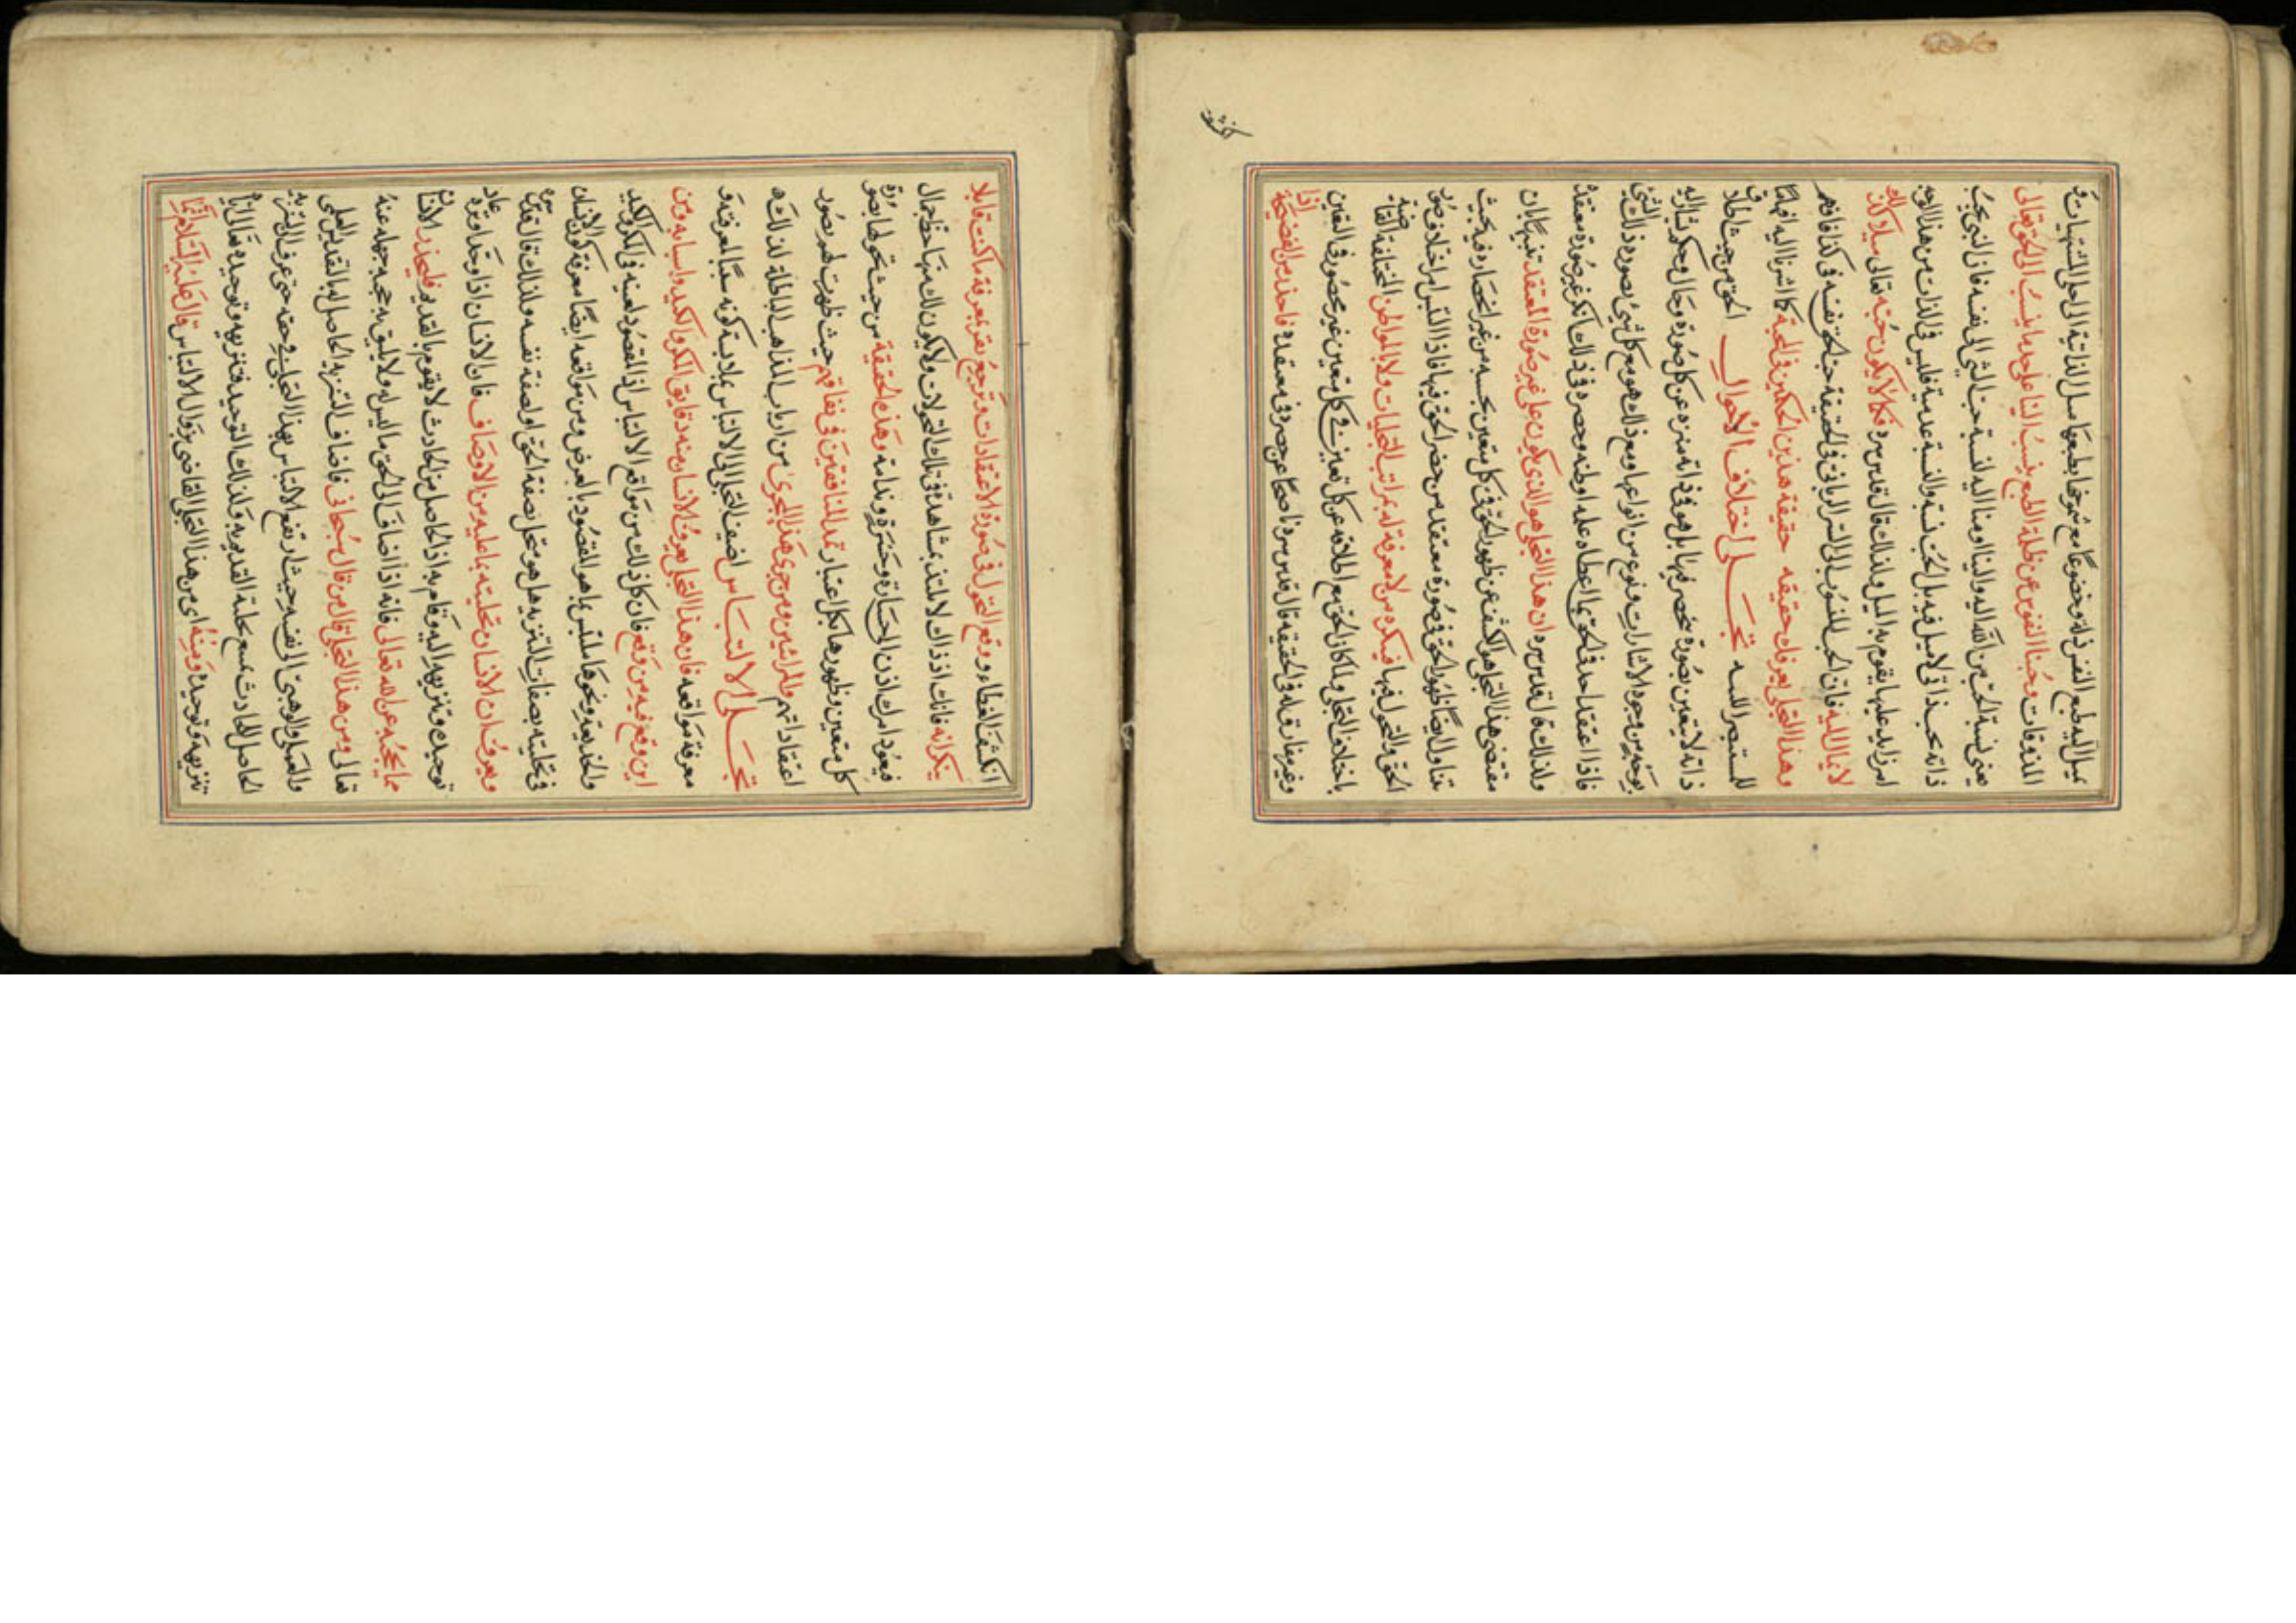 يميل اليه طبع النفس فذلة وخضوعا مع شموخها بطبعها سل الذاتية الى احلى المشتهيات و
المذوقات وحبنا النفوس عن ظلمة الطبع ينسب الينا على حد ما ينسب الى الحق تعالى
يعني نسبة الحب من الله اليه والينا ومنا اليه نسبة حب الشيء الى نفسه فان الشيء يحب
ذاته بحب ذاتي لا ميل فيه بل الحب نسبة والنسبة عدمية فليس في الذات من هذا الوجه
امر زايد عليها يقوم به الميل ولذلك قال قدس سره فكما لا يكون حبه تعالى سيلا كذلك
لا يمال اليه فان الحب المنسوب الى السر الرباني في الحقيقة حب الحق نفسه في كذا فافهم
وهذا التجلي يعرفك حقيقة هذين الحكمين في المحبة كما اشرنا اليه انفا
للمستبصر اللبيب تجلى اختلاف الاحوال الحق من حيث اطلاق
ذاته لا يتعين بصورة تنحصر فيها بل هو في ذاته منزه عن كل صورة وحال وحكم يشار اليه
بوجه من وجوه الاشارات ونوع من انواعها ومع ذلك هو مع كل شيء بصورة ذلك الشيء
فاذا اعتقد احد في الحق بما اعطاه علمه او ظنه وحصره في ذلك انكر غير صورة معتقده
ولذلك قال قدس سره ان هذا التجلي هو الذي يكون على غير صورة المعتقد تنبيها بان
مقتضى هذا التجلي هو الكشف عن ظهور الحق في كل متعين بحسبه من غير انحصاره فيه بحيث
تناول ايضا ظهور الحق في صورة معتقد من حصر الحق فيها فاذا التبس امر اختلاف صور
الحق والتحول فيها فينكره من لا معرفة له بمراتب التجليات ولا بالمواطن المختلفة القاضية
باختلاف التجلي ولما كان الحق مع اطلاقه عن كل تعين في كل متعين غير محصور في التعين
وغير مفارق له في الحقيقة قال قدس سره ناصحا عن حصره في معتقده فاحذر من الفضيحة اذا
انكشف
انكشف الغطاء ووقع التحول في صورة الاعتقادات وترجع تقر بمعرفة ما كنت قايلا
بنكرانه فانك اذ ذاك لا تلتذ بمشاهدة في تلك التحولات ولا يكون لك منها حظ جمال
فيعود امرك اذن الى خسارة وحسرة وندامة وهذه الحقيقة من حيث تحولها بصورة
كل متعين وظهورها بكل اعتبار تمد المنافقين في نفاقهم حيث ظهرت لهم بصور
اعتقاداتهم والمرائين ومن جرى هذا المجرى من ارباب المذاهب الباطلة لذلك
تجلى الالتباس اضيف التجلي الى الالتباس بملابسة كونه سببا لمعرفته و
معرفة مواقعه فان هذا التجلي يعرف الانسان منه دقايق المكر والكيد واسبابه ومن
اين وقع فيه من وقع فان كل ذلك من مواقع الالتباس اذ المقصود لعينه في المكر والكيد
والخديعة ونحوها ملتبس بما هو المقصود بالعرض ومن مواقعه ايضا معرفة كون الانسان
في تحليته بصفات التنزيه هل هو متحل بصفة الحق او بصفة نفسه ولذلك قال قدس سره
ويعرف ان الانسان تحليته بما عليه من الاوصاف فان الانسان اذا وحد او نزه عاد
توحيده وتنزيهه اليه وقام به اذ الحاصل من الحادث لا يقوم بالقديم فليحذر الانسان
مما يحجبه عن الله تعالى فانه اذا اضاف الى الحق ما ليس له ولا يليق به حجبه جهله عنه
تعالى ومن هذا التجلي قال من قال سبحاني فاضاف التنزيه الحاصل له بالتقديس العلمي
والعملي والوهبي الى نفسه حيث ارتفع الالتباس بهذا التجلي في حقه حتى عرف ان التنزيه
الحاصل للحادث يمتنع تحلية القديم به وكذلك التوحيد فتنزيهه وتوحيده تعالى لذاته
تنزيهه وتوحيده ومنه اي من هذا التجلي القاضي بزوال الالتباس قال عليه السلام انما